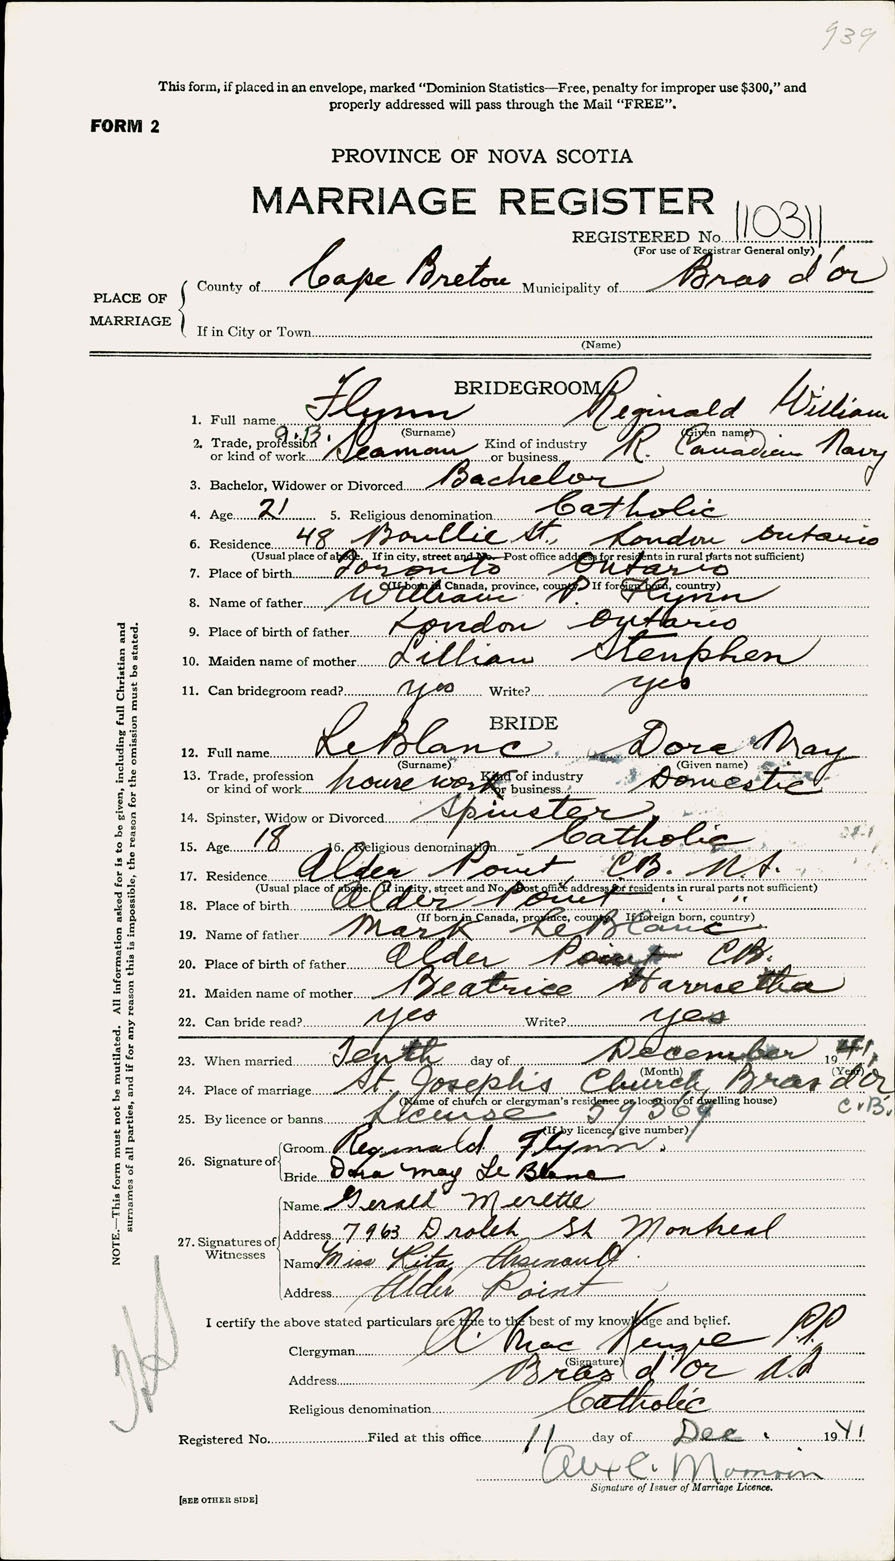 939
This form, if placed in an envelope, marked "Dominion Statistics—Free, penalty for improper use $300," and
properly addressed will pass through the Mail "FREE".
FORM 2
PROVINCE OF NOVA SCOTIA
MARRIAGE REGISTER
REGISTERED No. 110311
(For use of Registrar General only)
PLACE OF MARRIAGE
County of Cape Breton Municipality of Bras d'or
If in City or Town
(Name)
BRIDEGROOM
1. Full name Flynn Reginald William
(Surname) (Given name)
2. Trade, profession or kind of work Seaman Kind of industry or business R. Canadian Navy
3. Bachelor, Widower or Divorced Bachelor
4. Age 21 5. Religious denomination Catholic
6. Residence 48 St., London Ontario
(Usual place of abode. If in city, street and No. Post office address for residents in rural parts not sufficient)
7. Place of birth Toronto Ontario
(If born in Canada, province, county) If foreign born, country)
8. Name of father William P. Flynn
9. Place of birth of father London Ontario
10. Maiden name of mother Lillian Stenphen
11. Can bridegroom read? yes Write? yes
BRIDE
12. Full name LeBlanc Dora May
(Surname) (Given name)
13. Trade, profession or kind of work house work Kind of industry or business Domestic
14. Spinster, Widow or Divorced Spinster
15. Age 18 16. Religious denomination Catholic
17. Residence Alder Point, C.B. N.S.
(Usual place of abode. If in city, street and No. Post office address for residents in rural parts not sufficient)
18. Place of birth Alder Point " "
(If born in Canada, province, county If foreign born, country)
19. Name of father Mark LeBlanc
20. Place of birth of father Alder Point C.B.
21. Maiden name of mother Beatrice
22. Can bride read? yes Write? yes
23. When married Tenth day of December 1941
(Month) (Year)
24. Place of marriage St. Joseph's Church, Bras d'Or
(Name of church or clergyman's residence or location of dwelling house) C.B.
25. By licence or banns License 59369
(If by licence, give number)
26. Signature of Groom Reginald Flynn.
Bride Dora May Le Blanc
27. Signatures of Witnesses
Name Gerald Merette
Address 7963 Drolet St Montreal
Name Miss Rita Arsenault
Address Alder Point
I certify the above stated particulars are true to the best of my knowledge and belief.
Clergyman A. MacKenzie P.P.
(Signature)
Address Bras d'Or N.S
Religious denomination Catholic
Registered No. Filed at this office 11 day of Dec. 1941
Signature of Issuer of Marriage Licence.
[SEE OTHER SIDE]
NOTE.—This form must not be mutilated. All information asked for is to be given, including full Christian and
surnames of all parties, and if for any reason this is impossible, the reason for the omission must be stated.